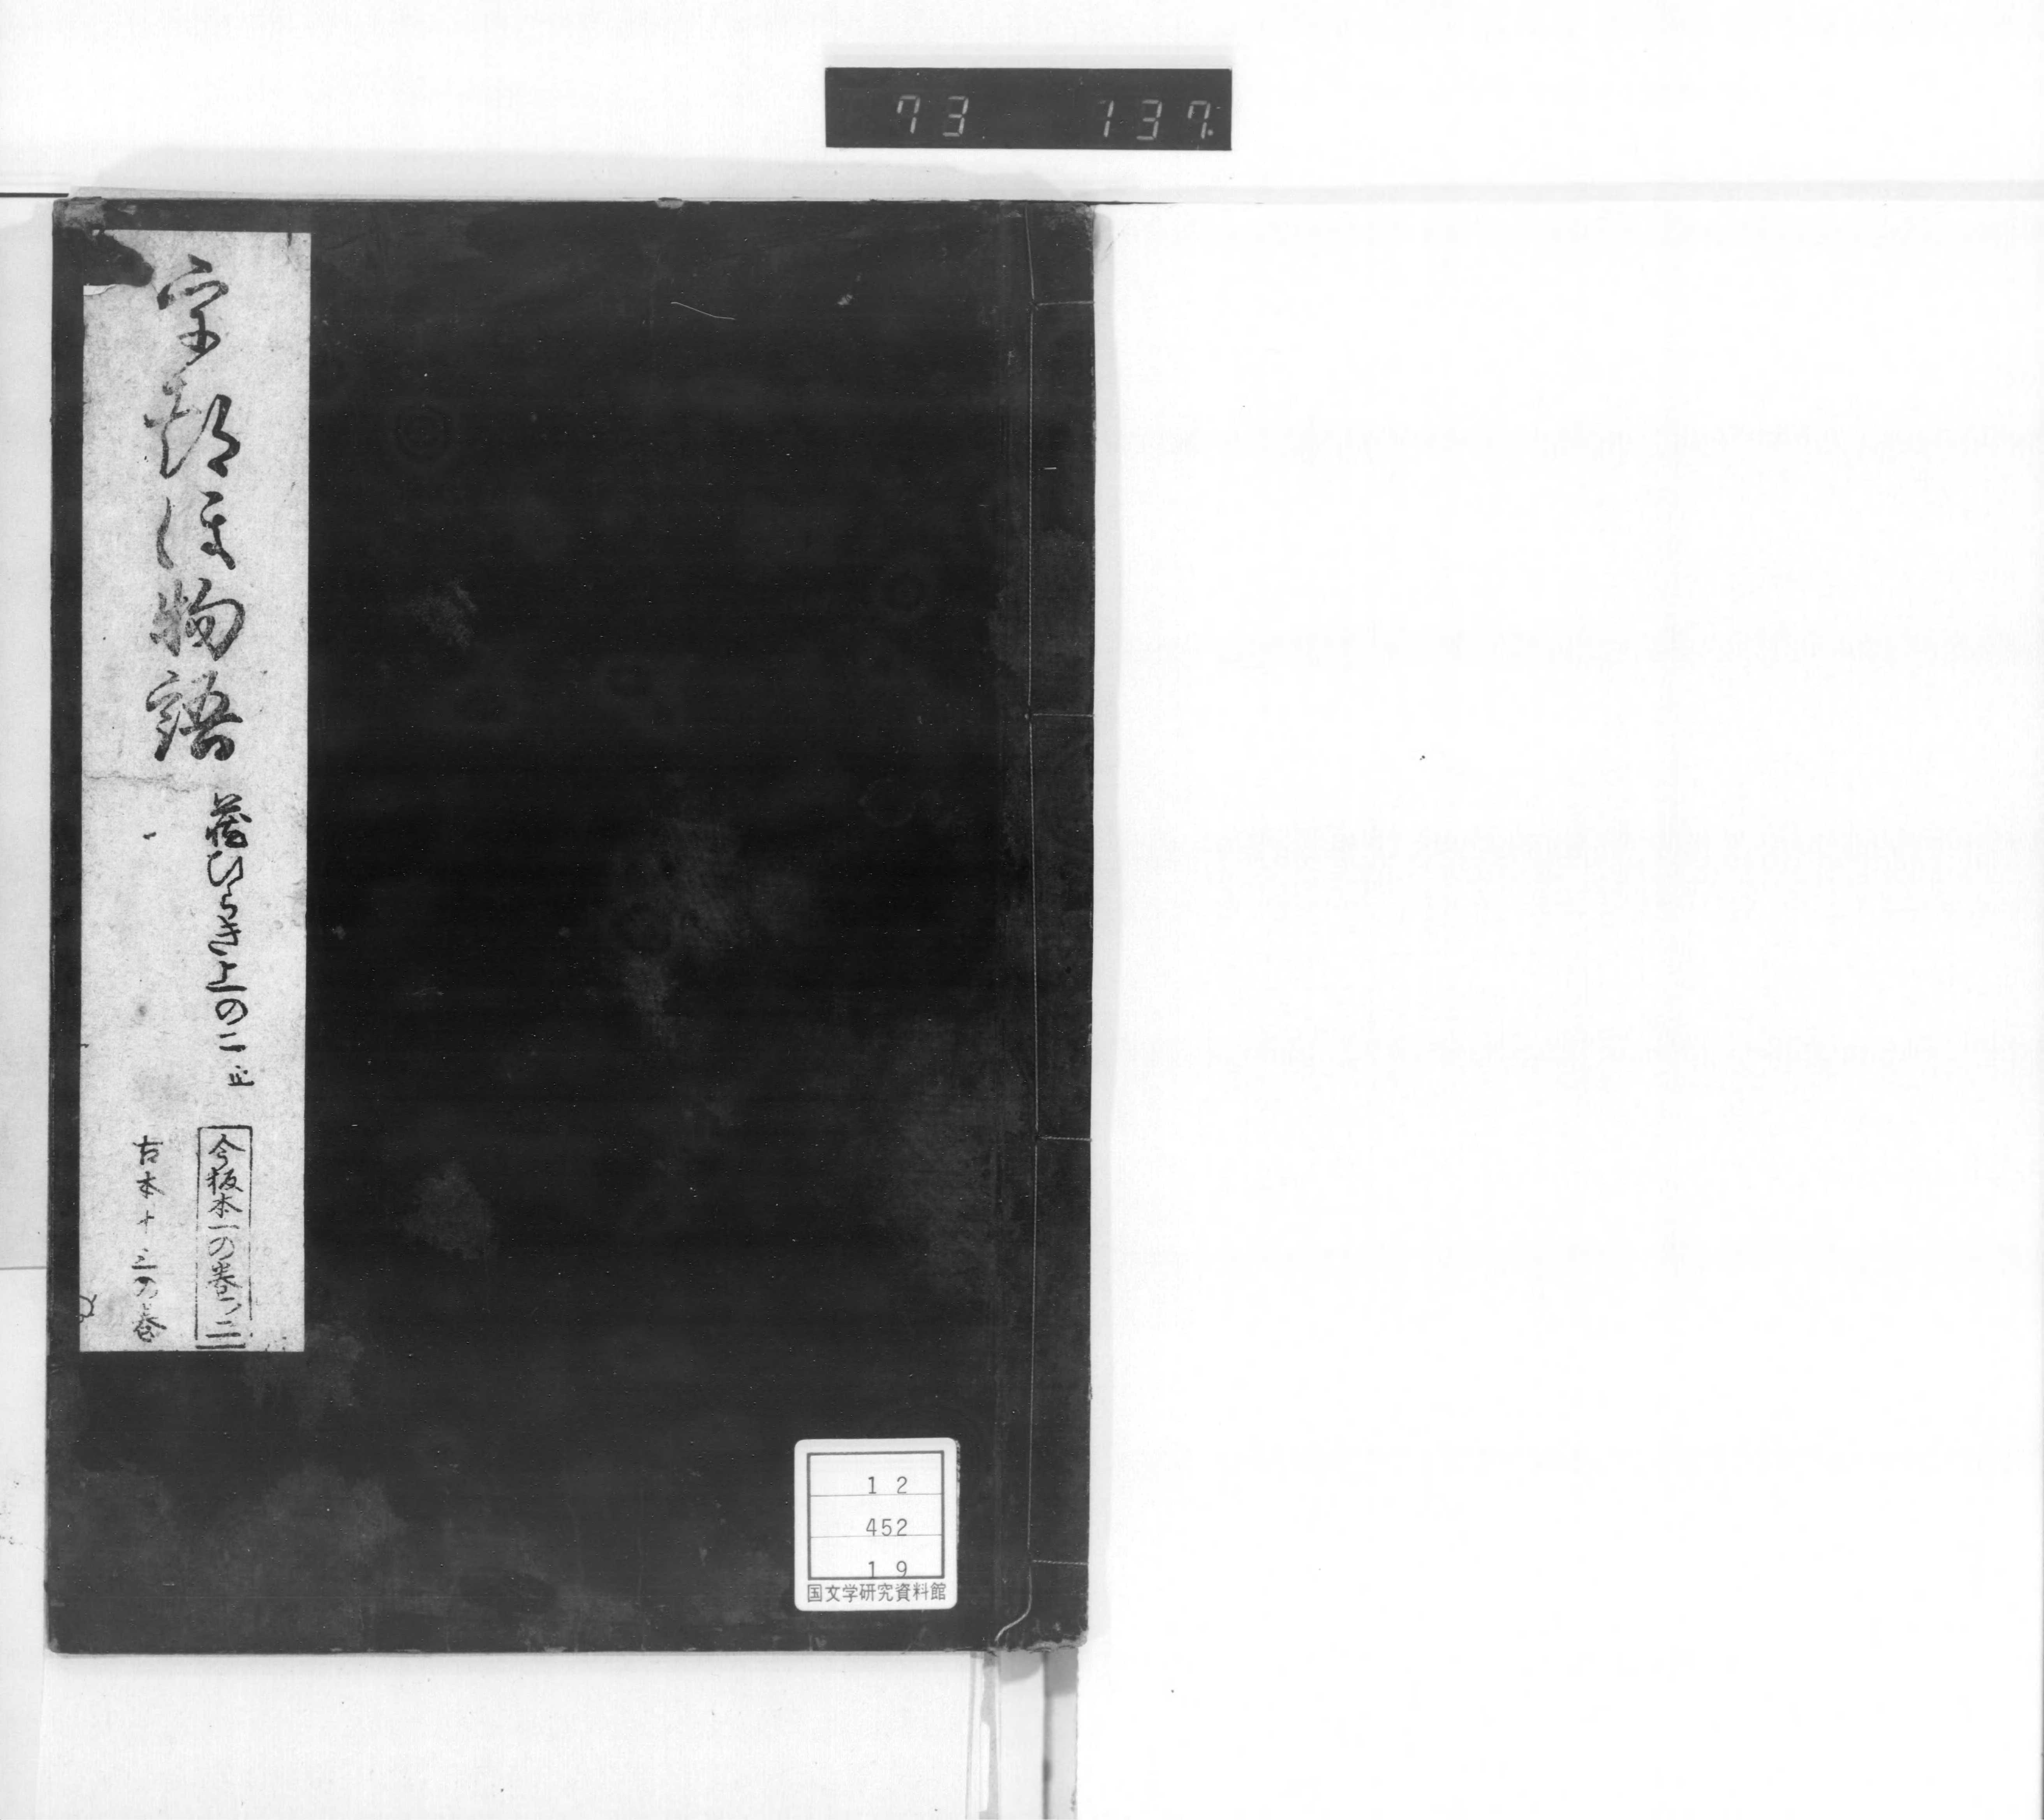 73 137
宇都ほ物語
蔵ひらき上の二 止
今板本一の巻ノ二
古本十三の巻
12
452
19
国文学研究資料館